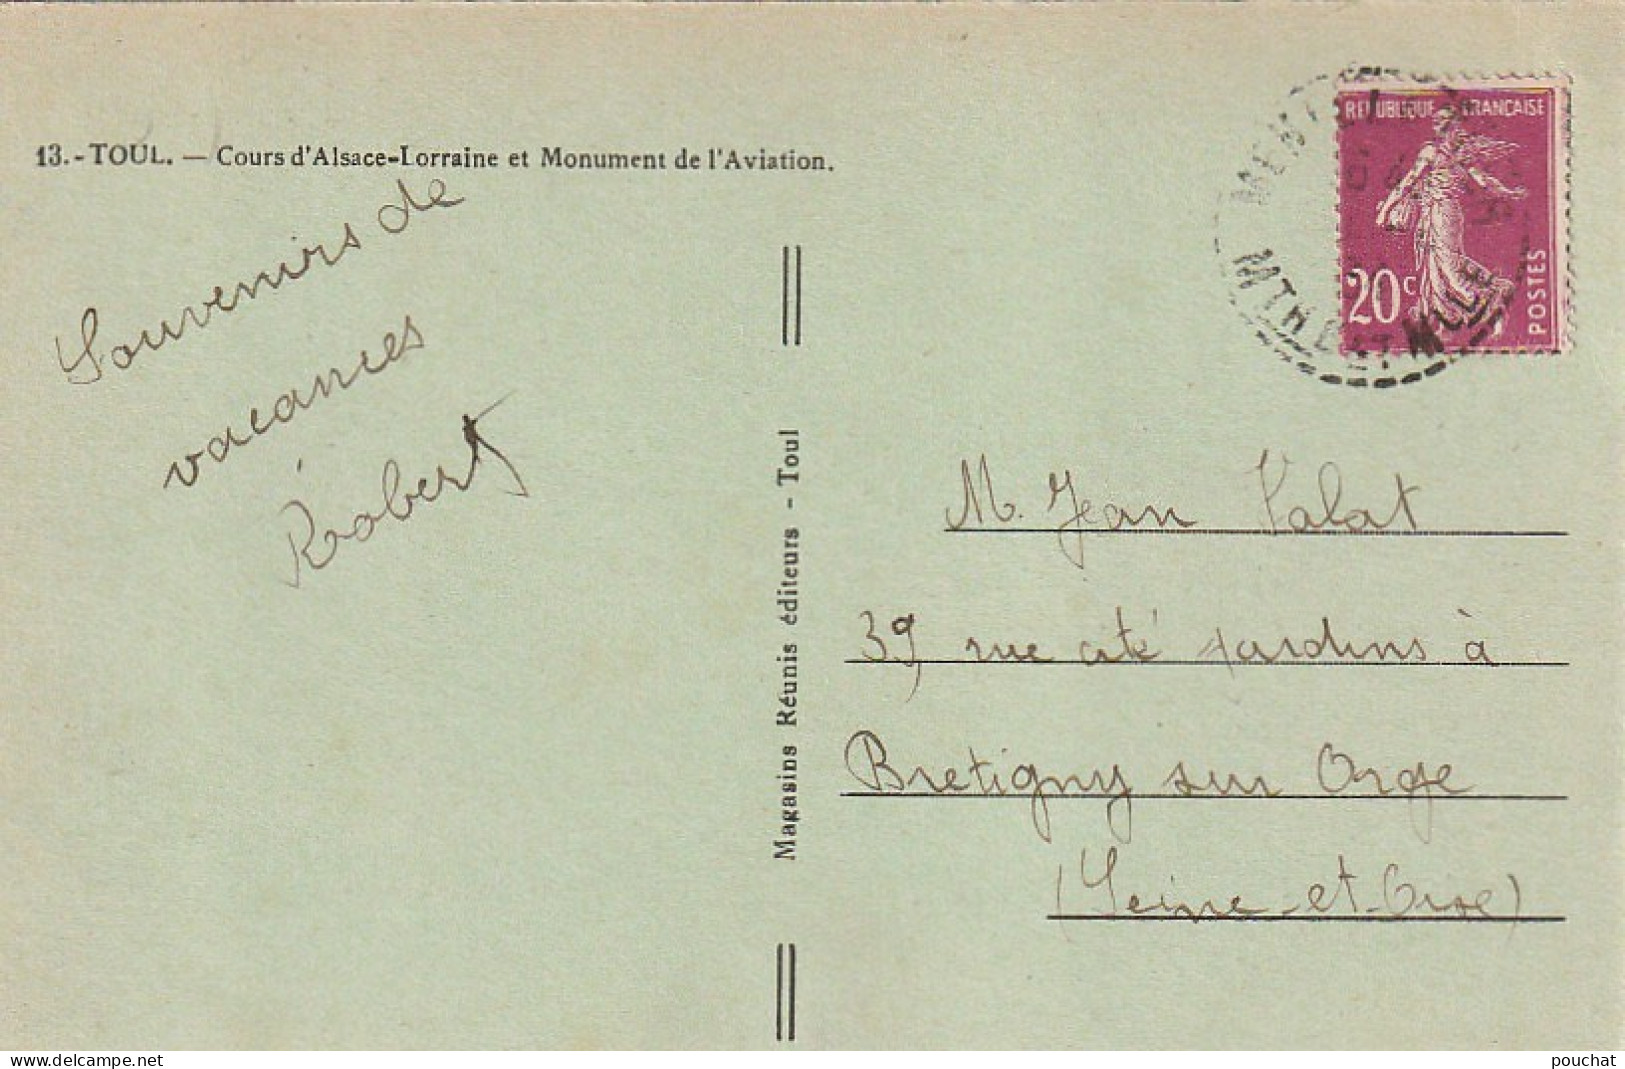 13.-TOUL. — Cours d'Alsace-Lorraine et Monument de l'Aviation.
Souvenirs de
vacances
Robert
Magasins Réunis éditeurs - Toul
REPUBLIQUE FRANÇAISE
20c
POSTES
MTHE ET MLLE
M. Jean Valat
39 rue cité Jardins à
Bretigny sur Orge
(Seine-et-Oise)
www.delcampe.net
pouchat